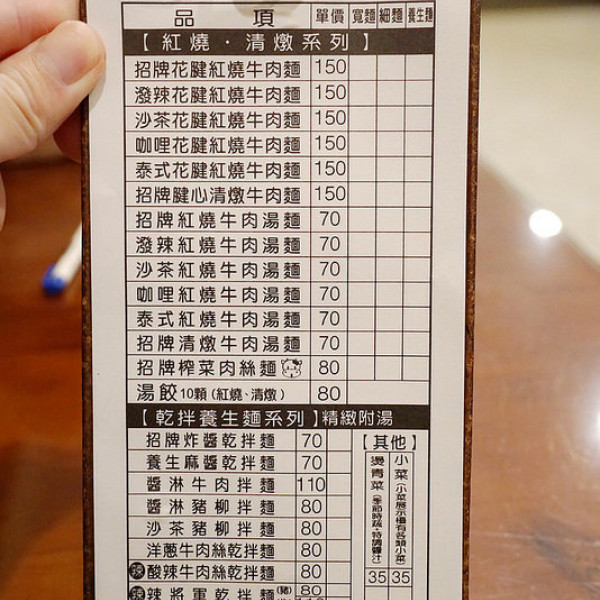 品項 單價 寬麵 細麵 養生麵
【紅燒・清燉系列】
招牌花腱紅燒牛肉麵 150
潑辣花腱紅燒牛肉麵 150
沙茶花腱紅燒牛肉麵 150
咖哩花腱紅燒牛肉麵 150
泰式花腱紅燒牛肉麵 150
招牌腱心清燉牛肉麵 150
招牌紅燒牛肉湯麵 70
潑辣紅燒牛肉湯麵 70
沙茶紅燒牛肉湯麵 70
咖哩紅燒牛肉湯麵 70
泰式紅燒牛肉湯麵 70
招牌清燉牛肉湯麵 70
招牌榨菜肉絲麵 80
湯餃10顆(紅燒、清燉) 80
【乾拌養生麵系列】精緻附湯
招牌炸醬乾拌麵 70
養生麻醬乾拌麵 70
醬淋牛肉拌麵 110
醬淋豬柳拌麵 80
沙茶豬柳拌麵 80
洋蔥牛肉絲乾拌麵 80
辣 酸辣牛肉絲乾拌麵 80
辣 辣將軍乾拌麵 (豬) 80
【其他】
小菜(小菜展示櫃有各類小菜) 35
燙青菜(季節時蔬・特調醬汁) 35